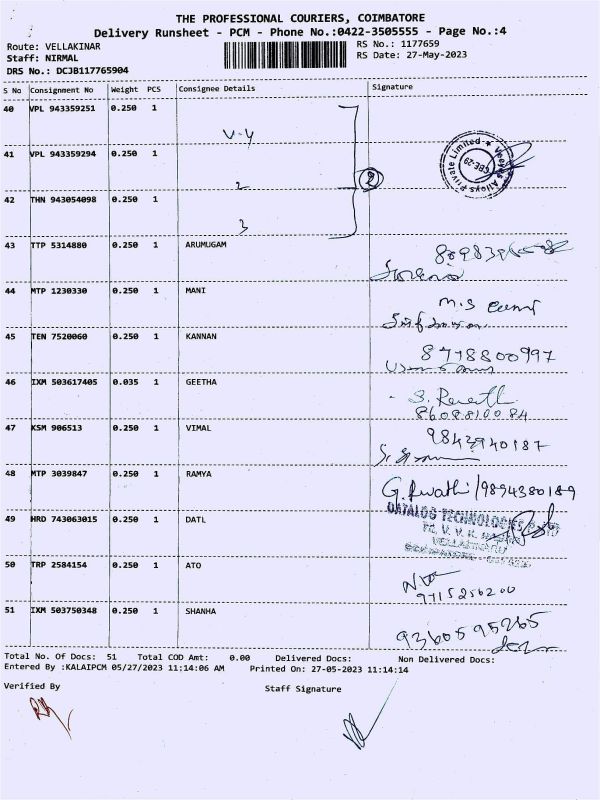 THE PROFESSIONAL COURIERS, COIMBATORE
Delivery Runsheet - PCM - Phone No.:0422-3505555 - Page No.:4
Route: VELLAKINAR RS No.: 1177659
Staff: NIRMAL RS Date: 27-May-2023
DRS No.: DCJB117765904
S No Consignment No Weight PCS Consignee Details Signature
40 VPL 943359251 0.250 1
V-4
41 VPL 943359294 0.250 1
Private Limited
CBE-29
2 2
42 THN 943054098 0.250 1
3
43 TTP 5314880 0.250 1 ARUMUGAM
44 MTP 1230330 0.250 1 MANI
M.S
45 TEN 7520060 0.250 1 KANNAN
8778800997
46 IXM 503617405 0.035 1 GEETHA
S. Revath
8608810084
47 KSM 906513 0.250 1 VIMAL
9843940187
48 MTP 3039847 0.250 1 RAMYA
G. Revathi /9894380189
49 HRD 743063015 0.250 1 DATL
DATALOG TECHNOLOGIES P LTD
50 TRP 2584154 0.250 1 ATO
9715256200
51 IXM 503750348 0.250 1 SHANHA
9360595265
Total No. Of Docs: 51 Total COD Amt: 0.00 Delivered Docs: Non Delivered Docs:
Entered By :KALAIPCM 05/27/2023 11:14:06 AM Printed On: 27-05-2023 11:14:14
Verified By Staff Signature